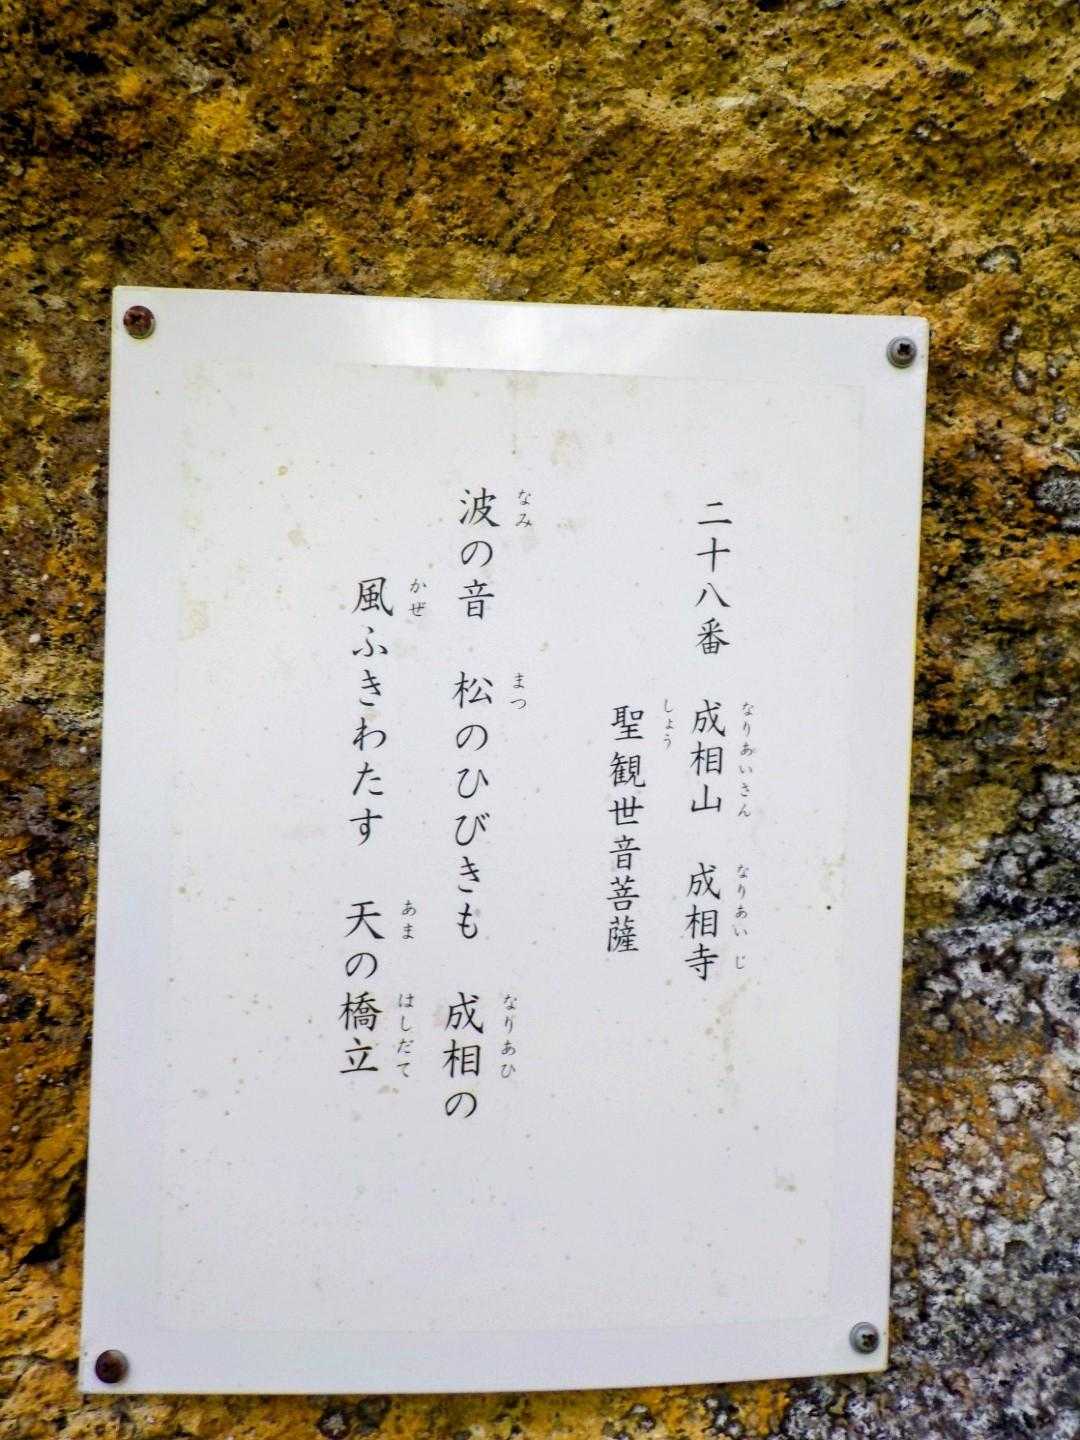 二十八番　成相山　成相寺
なりあいさん　なりあいじ
聖観世音菩薩
しょう
波の音　松のひびきも　成相の
なみ　まつ　なりあひ
風ふきわたす　天の橋立
かぜ　あま　はしだて